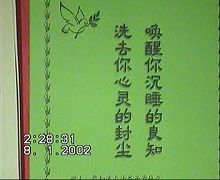 唤醒你沉睡的良知
洗去你心灵的封尘
2:28:31
8. 1.2002